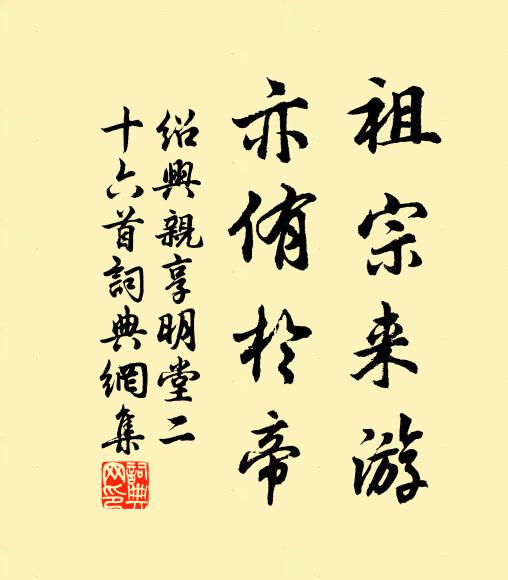 祖宗来游
亦侑於帝
绍興親享明堂二
十六首詞典網集
詞典网印